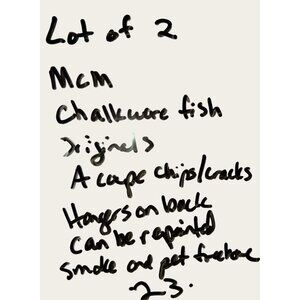 Lot of 2
MCM
Chalkware fish
Originals
A coupe chips/cracks
Hangers on back
can be repainted
smoke and pet freehome
23.